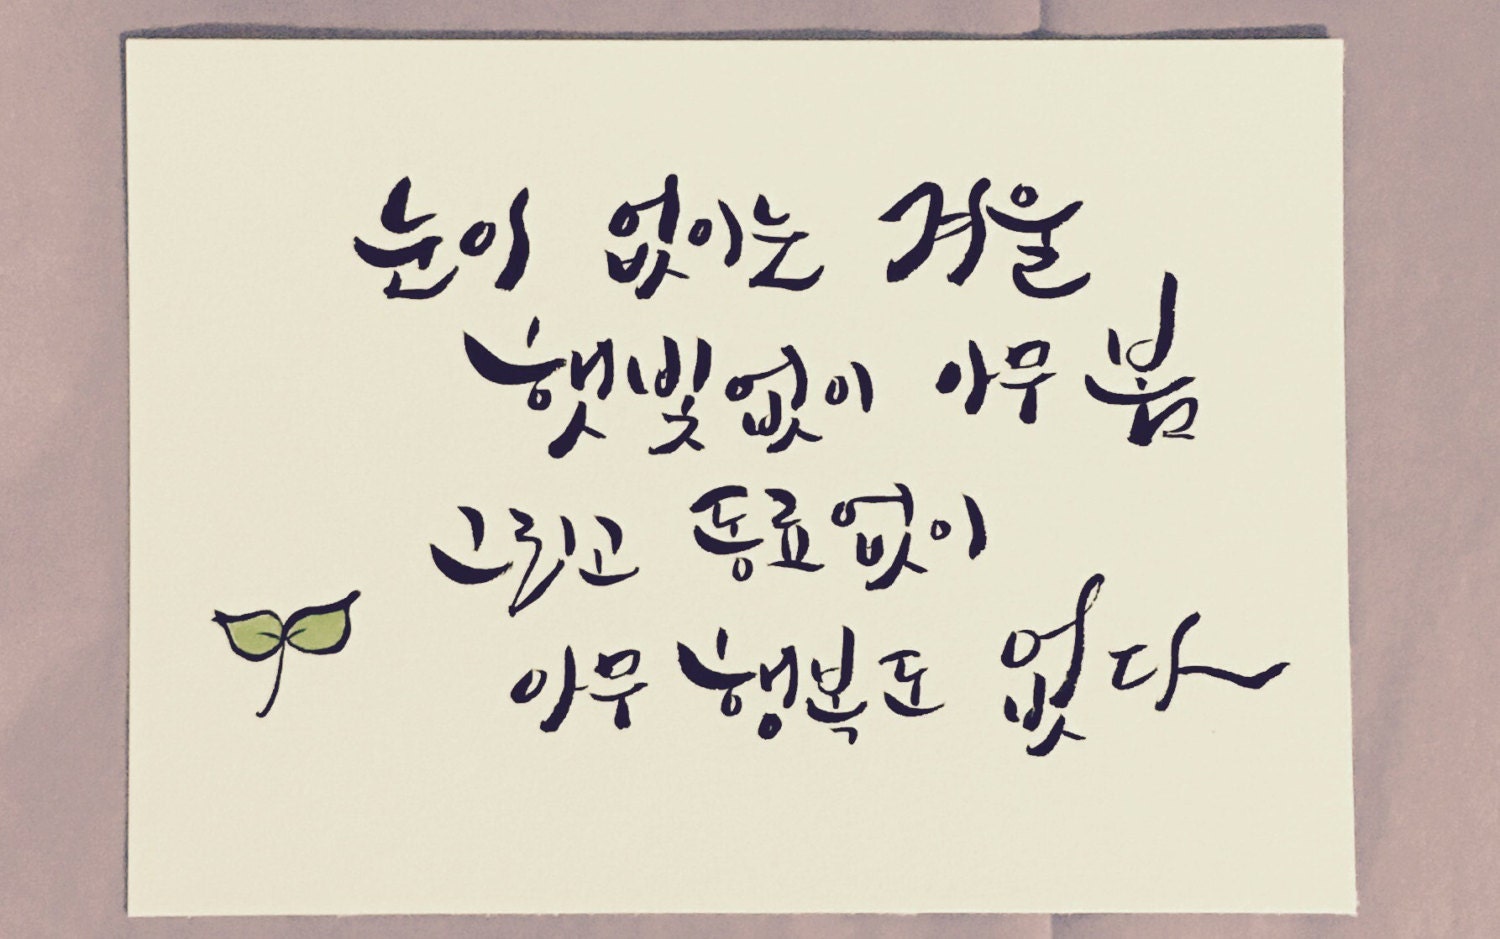 눈이 없이는 겨울
햇빛없이 아무 봄
그리고 동료없이
아무 행복도 없다